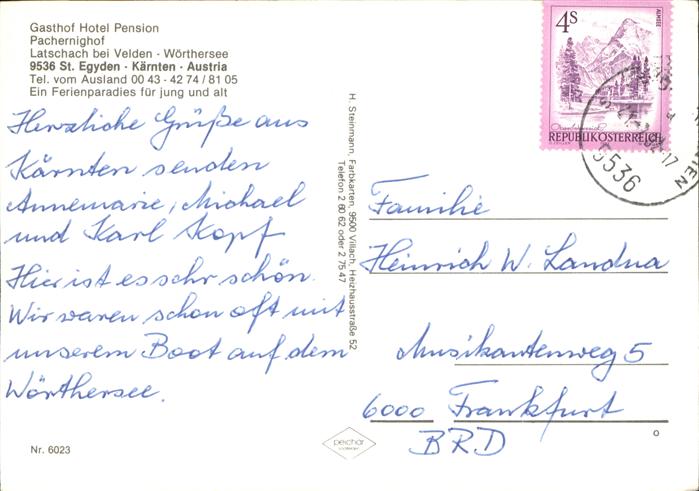 Gasthof Hotel Pension
Pachernighof
Latschach bei Velden · Wörthersee
9536 St. Egyden · Kärnten · Austria
Tel. vom Ausland 00 43 - 42 74 / 81 05
Ein Ferienparadies für jung und alt
Herzliche Grüße aus
Kärnten senden
Annemarie, Michael
und Karl Kopf
Hier ist es sehr schön.
Wir waren schon oft mit
unserem Boot auf dem
Wörthersee.
Nr. 6023
H. Steinmann, Farbkarten, 9500 Villach, Heizhausstraße 52
Telefon 2 60 62 oder 2 75 47
4S
ALMSEE
REPUBLIK ÖSTERREICH
9536
Familie
Heinrich W. Landua
Musikantenweg 5
6000 Frankfurt
BRD